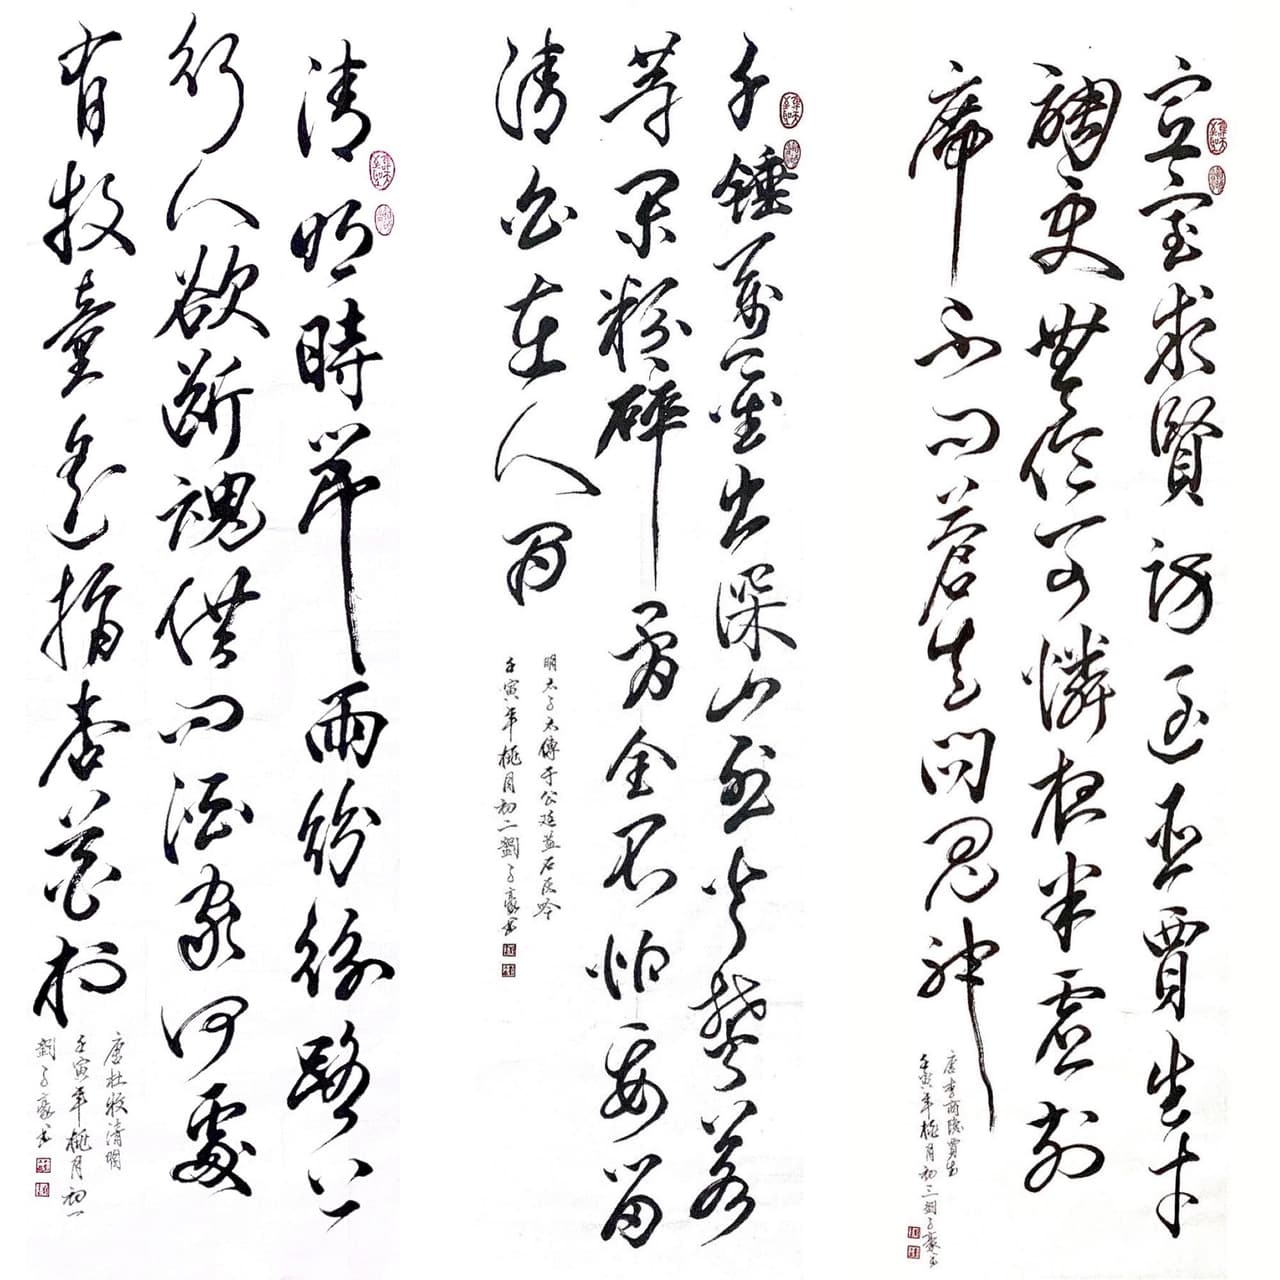 宣室求賢訪逐臣賈生才
調更無倫可憐夜半虛前
席不問蒼生問鬼神
唐李商隱賈生
壬寅年桃月初三劉子豪書
千錘萬鑿出深山烈火焚若
等閒粉碎全不怕要留
清白在人間
明太子太傅于公廷益石灰吟
壬寅年桃月初二劉子豪書
清明時節雨紛紛路上
行人欲斷魂借問酒家何處
有牧童遙指杏花村
唐杜牧清明
壬寅年桃月初一
劉子豪書